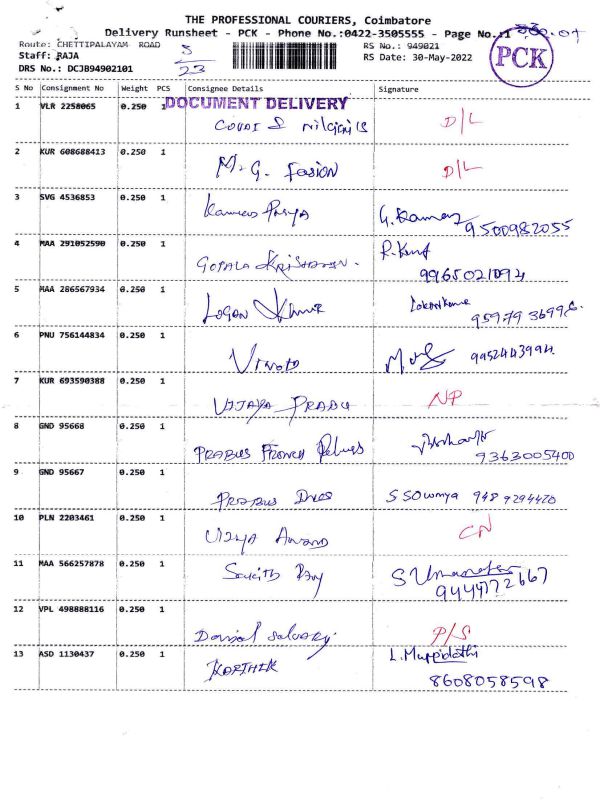 THE PROFESSIONAL COURIERS, Coimbatore
Delivery Runsheet - PCK - Phone No.:0422-3505555 - Page No.:1
Route: CHETTIPALAYAM ROAD
3/23
RS No.: 949021
Staff: RAJA
RS Date: 30-May-2022
PCK
DRS No.: DCJB94902101
S No Consignment No Weight PCS Consignee Details Signature
DOCUMENT DELIVERY
1 VLR 2258065 0.250 1 D/L
2 KUR 608688413 0.250 1 M. G. Fasion D/L
3 SVG 4536853 0.250 1 9500982055
4 MAA 291052590 0.250 1 GOPALA KRISHNAN.
9965021094
5 MAA 286567934 0.250 1 LOGAN
6 PNU 756144834 0.250 1 9952443994.
7 KUR 693590388 0.250 1 VIJAYA PRABU NP
8 GND 95668 0.250 1 PRABUS
9363005400
9 GND 95667 0.250 1 PRABUS
S Sowmya 948 9294420
10 PLN 2203461 0.250 1 VIJYA ANAND CN
11 MAA 566257878 0.250 1
9444172667
12 VPL 498888116 0.250 1 P/S
13 ASD 1130437 0.250 1 KORTHIK L. Muppidathi
8608058598